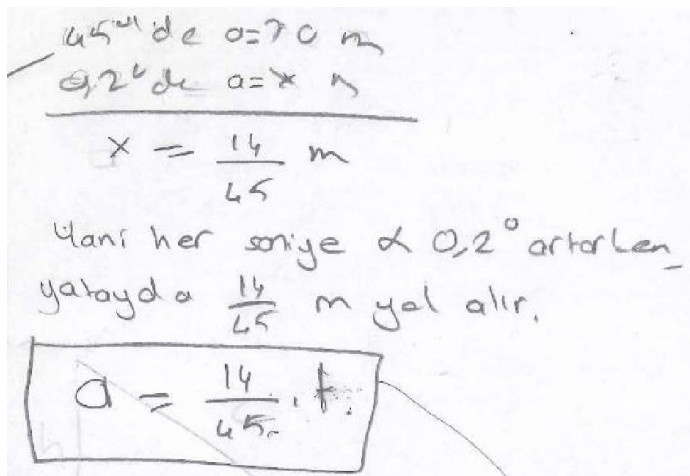 45° de a=70 m
0,2° de a=x m
x = 14/45 m
Yani her saniye α 0,2° artarken
yatayda 14/45 m yol alır.
a = 14/45 . t.